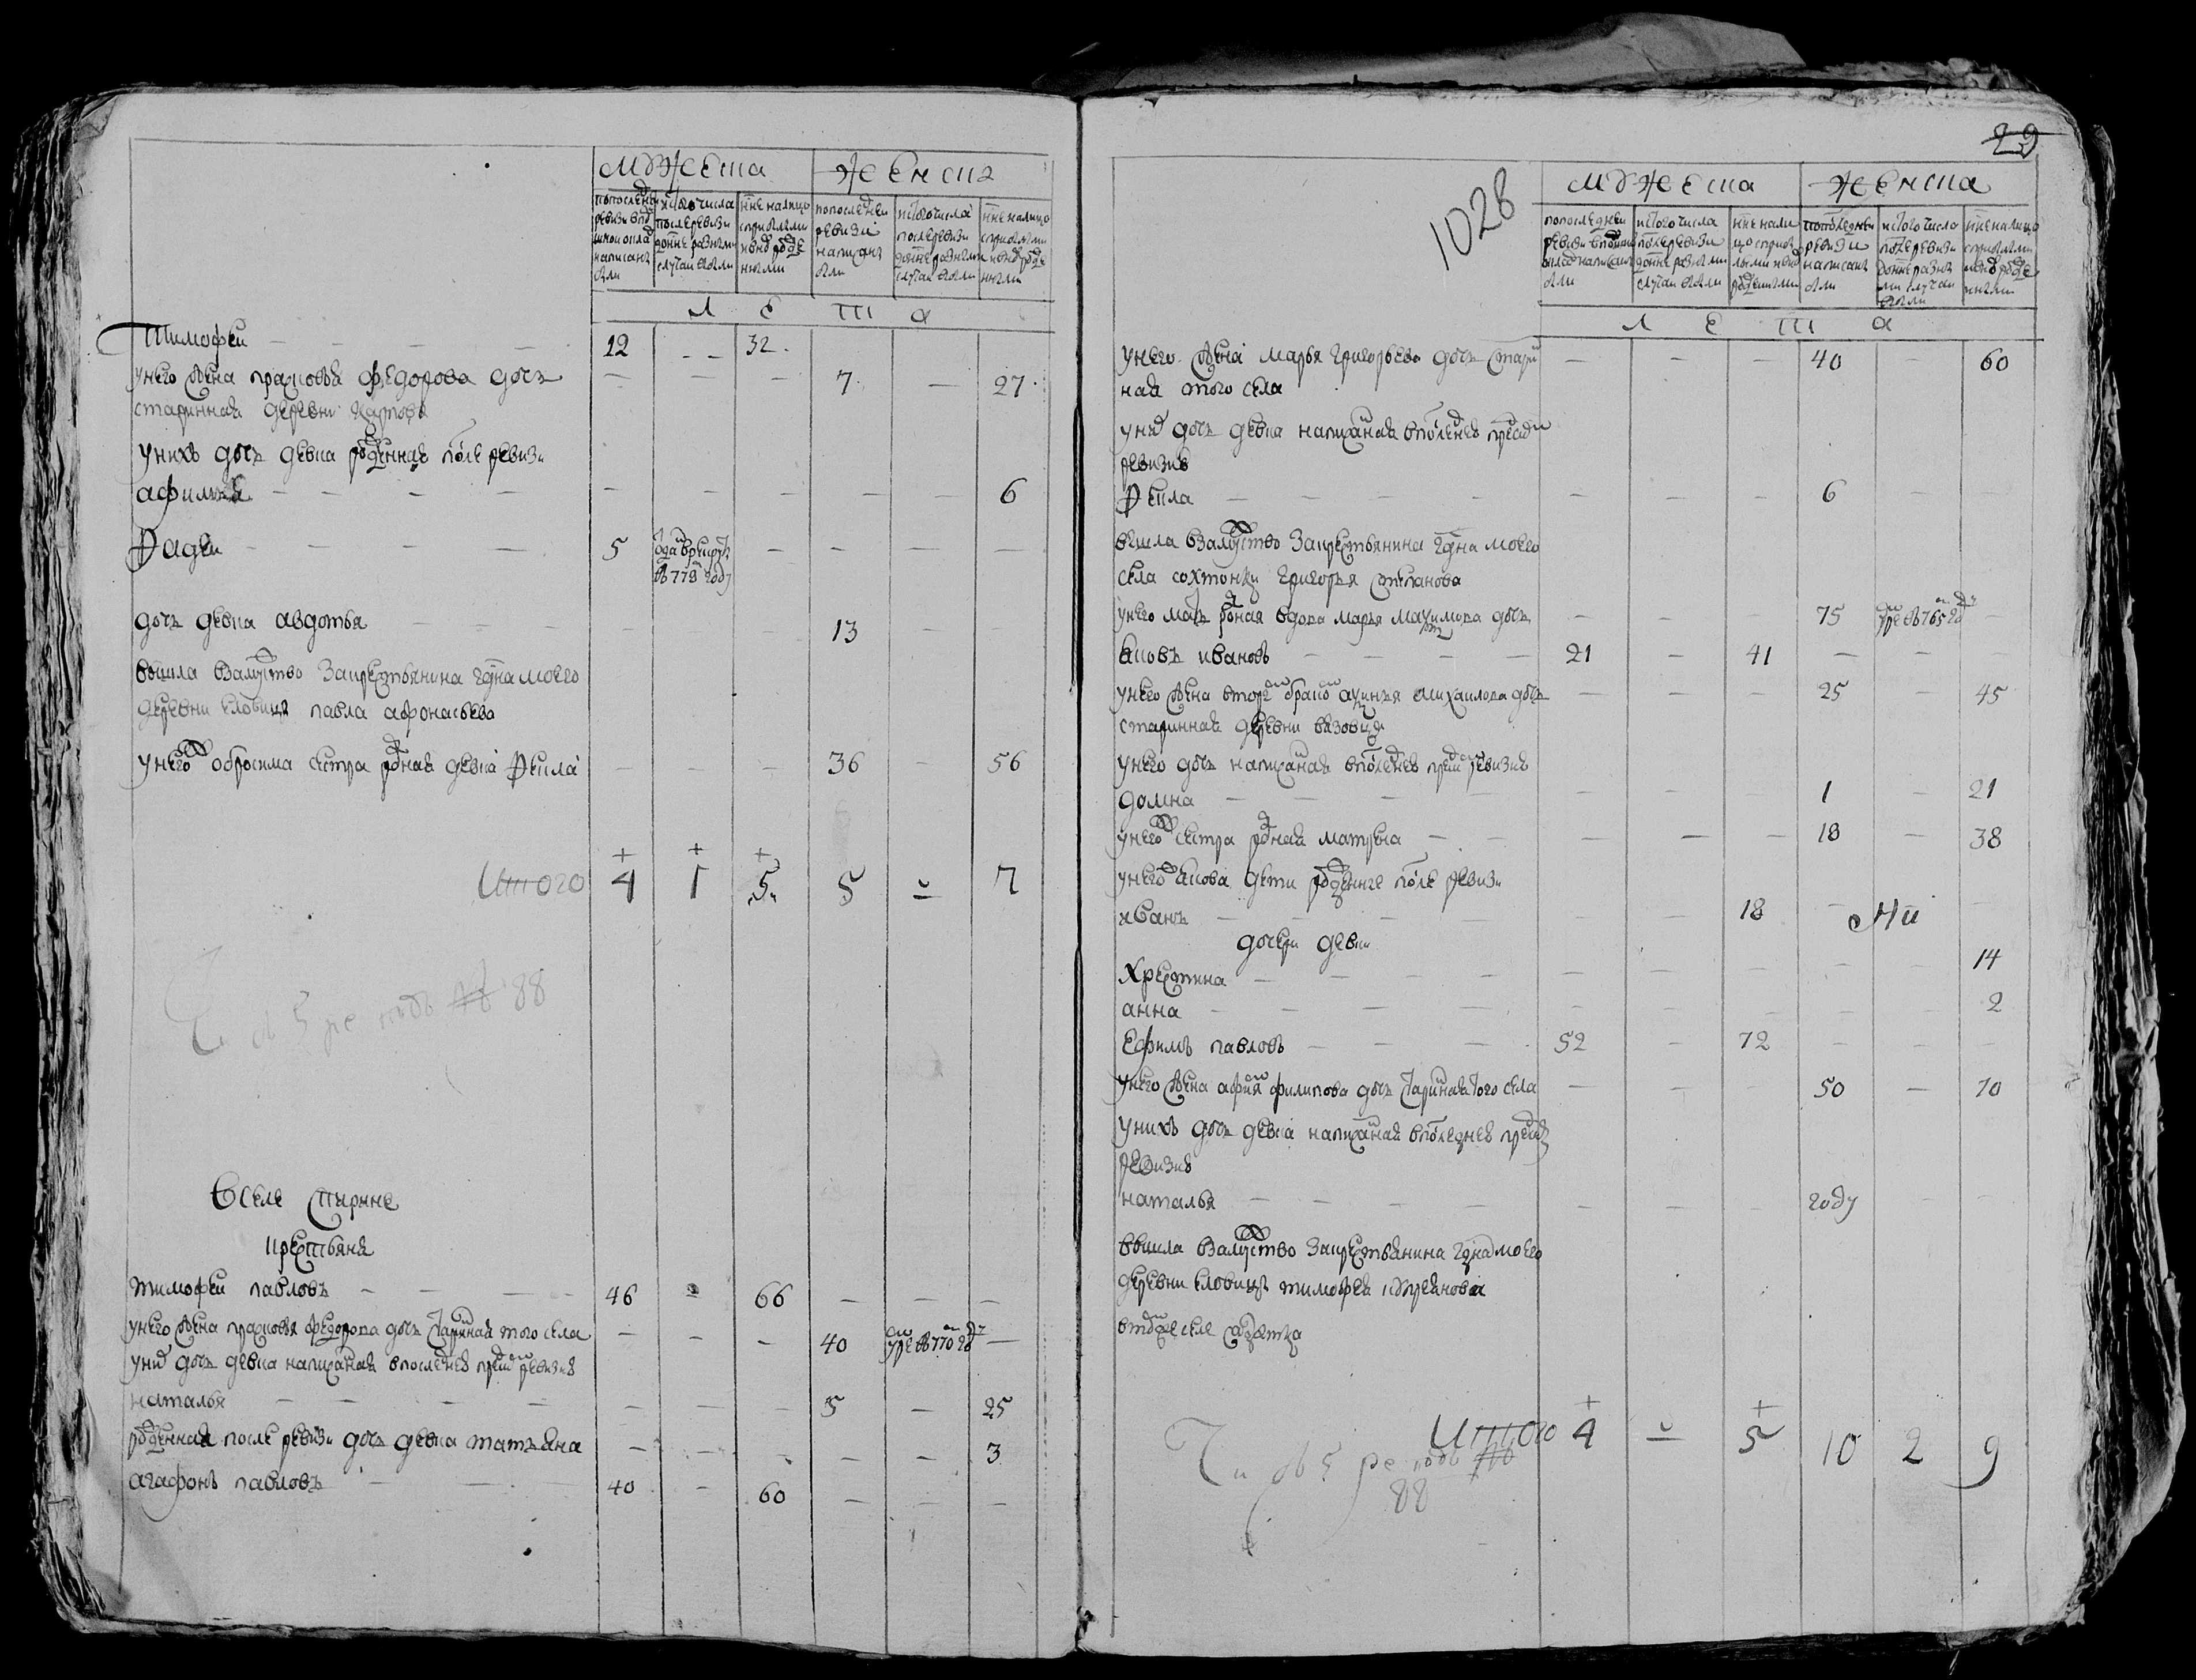 мужеска женска
попоследней ревизи вподушной оклад написаны были
ис того числа после ревизи до ныне разными случаи выбыли
ныне налицо с прибылыми и вновь рожденными
попоследней ревизи написаны были
ис того числа после ревизи до ныне разными случаи выбыли
ныне налицо с прибылыми и вновь рожденными
л е т а
Тимофеи 12 32
унего жена прасковья федорова дочь 7 27
старинная деревни
унихъ дочь девка рожденная после ревизи
афимья 6
Фадеи 5 отдан в рекруты в 773 году
дочь девка авдотья 13
вышла взамужство закрестьянина гдна моего
деревни еловица павла афонасьева
унегож обросима сестра родная девка Фекла 36 56
Итого 4 1 5 5 7
88
Вселе Спирине
крестьяня
тимофеи павловъ 46 66
унего жена прасковья федорова дочь старинная того села 40 умре въ 770 году
уних дочь девка написанная впоследней пред сей ревизие
наталья 5 25
рожденная после ревизи дочь девка татьяна 3
агафонъ павловъ 40 60
29
1028
мужеска женска
попоследней ревизи вподушной оклад написаны были
ис того числа после ревизи до ныне разными случаи выбыли
ныне налицо с прибылыми и вновь рожденными
попоследней ревизи написаны были
ис того числа после ревизи до ныне разными случаи выбыли
ныне налицо с прибылыми и вновь рожденными
л е т а
унего жена марья григорьева дочь стари 40 60
ная того села
уних дочь девка написанная впоследней пред сей
ревизие
Фекла 6
вышла взамужство закрестьянина гдна моего
села сохтонки григорья степанова
унего мать родная вдова марья максимова дочь 75 умре въ 765 году
яковъ ивановъ 21 41
унего жена второбрашная аксинья михаилова дочь 25 45
стариннай деревни вязовца
унего дочь написанная впоследней пред сей ревизие
домна 1 21
унегож сестра родная матрена 18 38
унегож якова дети рожденые после ревизи
иванъ 18
дочери девки
Христина 14
анна 2
Ефимъ павловъ 52 72
унего жена афимья филипова дочь старинная того села 50 70
унихъ дочь девка написанная впоследней пред сей
ревизие
наталья году
вышла взамужство закрестьянина гдна моего
деревни еловицы тимофея
Итого 4 5 10 2 9
88